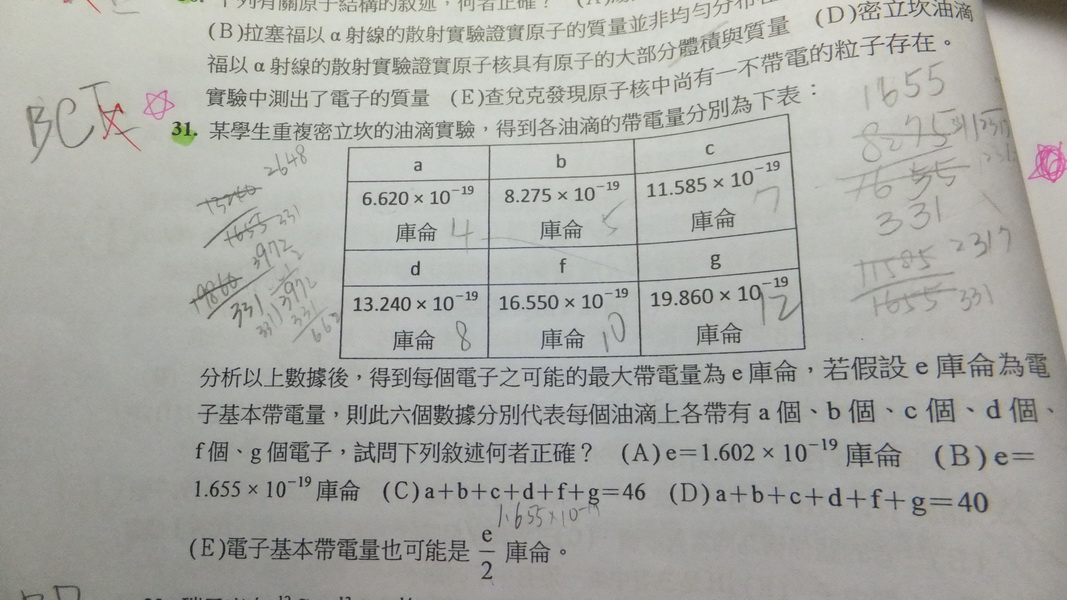 下列有關原子結構的敘述,何者正確?
(B)拉塞福以α射線的散射實驗證實原子的質量並非均勻分布在
福以α射線的散射實驗證實原子核具有原子的大部分體積與質量 (D)密立坎油滴
實驗中測出了電子的質量 (E)查兌克發現原子核中尚有一不帶電的粒子存在。
BC
31. 某學生重複密立坎的油滴實驗,得到各油滴的帶電量分別為下表:
a b c
6.620 × 10⁻¹⁹ 8.275 × 10⁻¹⁹ 11.585 × 10⁻¹⁹
庫侖 4 庫侖 5 庫侖 7
d f g
13.240 × 10⁻¹⁹ 16.550 × 10⁻¹⁹ 19.860 × 10⁻¹⁹
庫侖 8 庫侖 10 庫侖 12
2648
1655 331
3972
331
1655
8275
1655
331
11585 2317
1655 331
分析以上數據後,得到每個電子之可能的最大帶電量為 e 庫侖,若假設 e 庫侖為電
子基本帶電量,則此六個數據分別代表每個油滴上各帶有 a 個、b 個、c 個、d 個、
f 個、g 個電子,試問下列敘述何者正確? (A) e=1.602 × 10⁻¹⁹ 庫侖 (B) e=
1.655 × 10⁻¹⁹ 庫侖 (C) a+b+c+d+f+g=46 (D) a+b+c+d+f+g=40
1.655×10⁻¹⁹
(E)電子基本帶電量也可能是 e/2 庫侖。